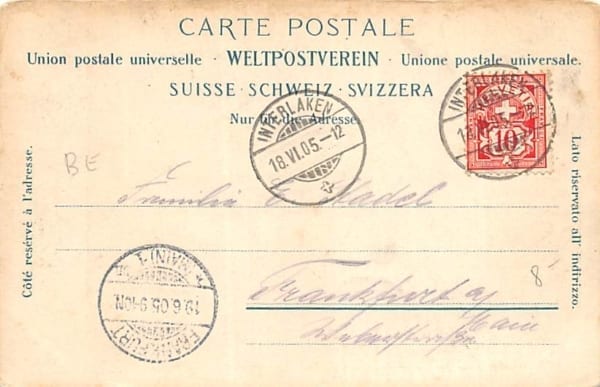 CARTE POSTALE
Union postale universelle · WELTPOSTVEREIN · Unione postale universale.
SUISSE · SCHWEIZ · SVIZZERA
Nur für die Adresse.
INTERLAKEN
18.VI.05.-12
INTERLAKEN
HELVETIA
10
BE
Côté reservé à l'adresse.
Lato riservato all' indirizzo.
Familie E. Stadel
8
Frankfurt a/
Main
FRANKFURT
(MAIN) 1
19.6.05.9-10N.